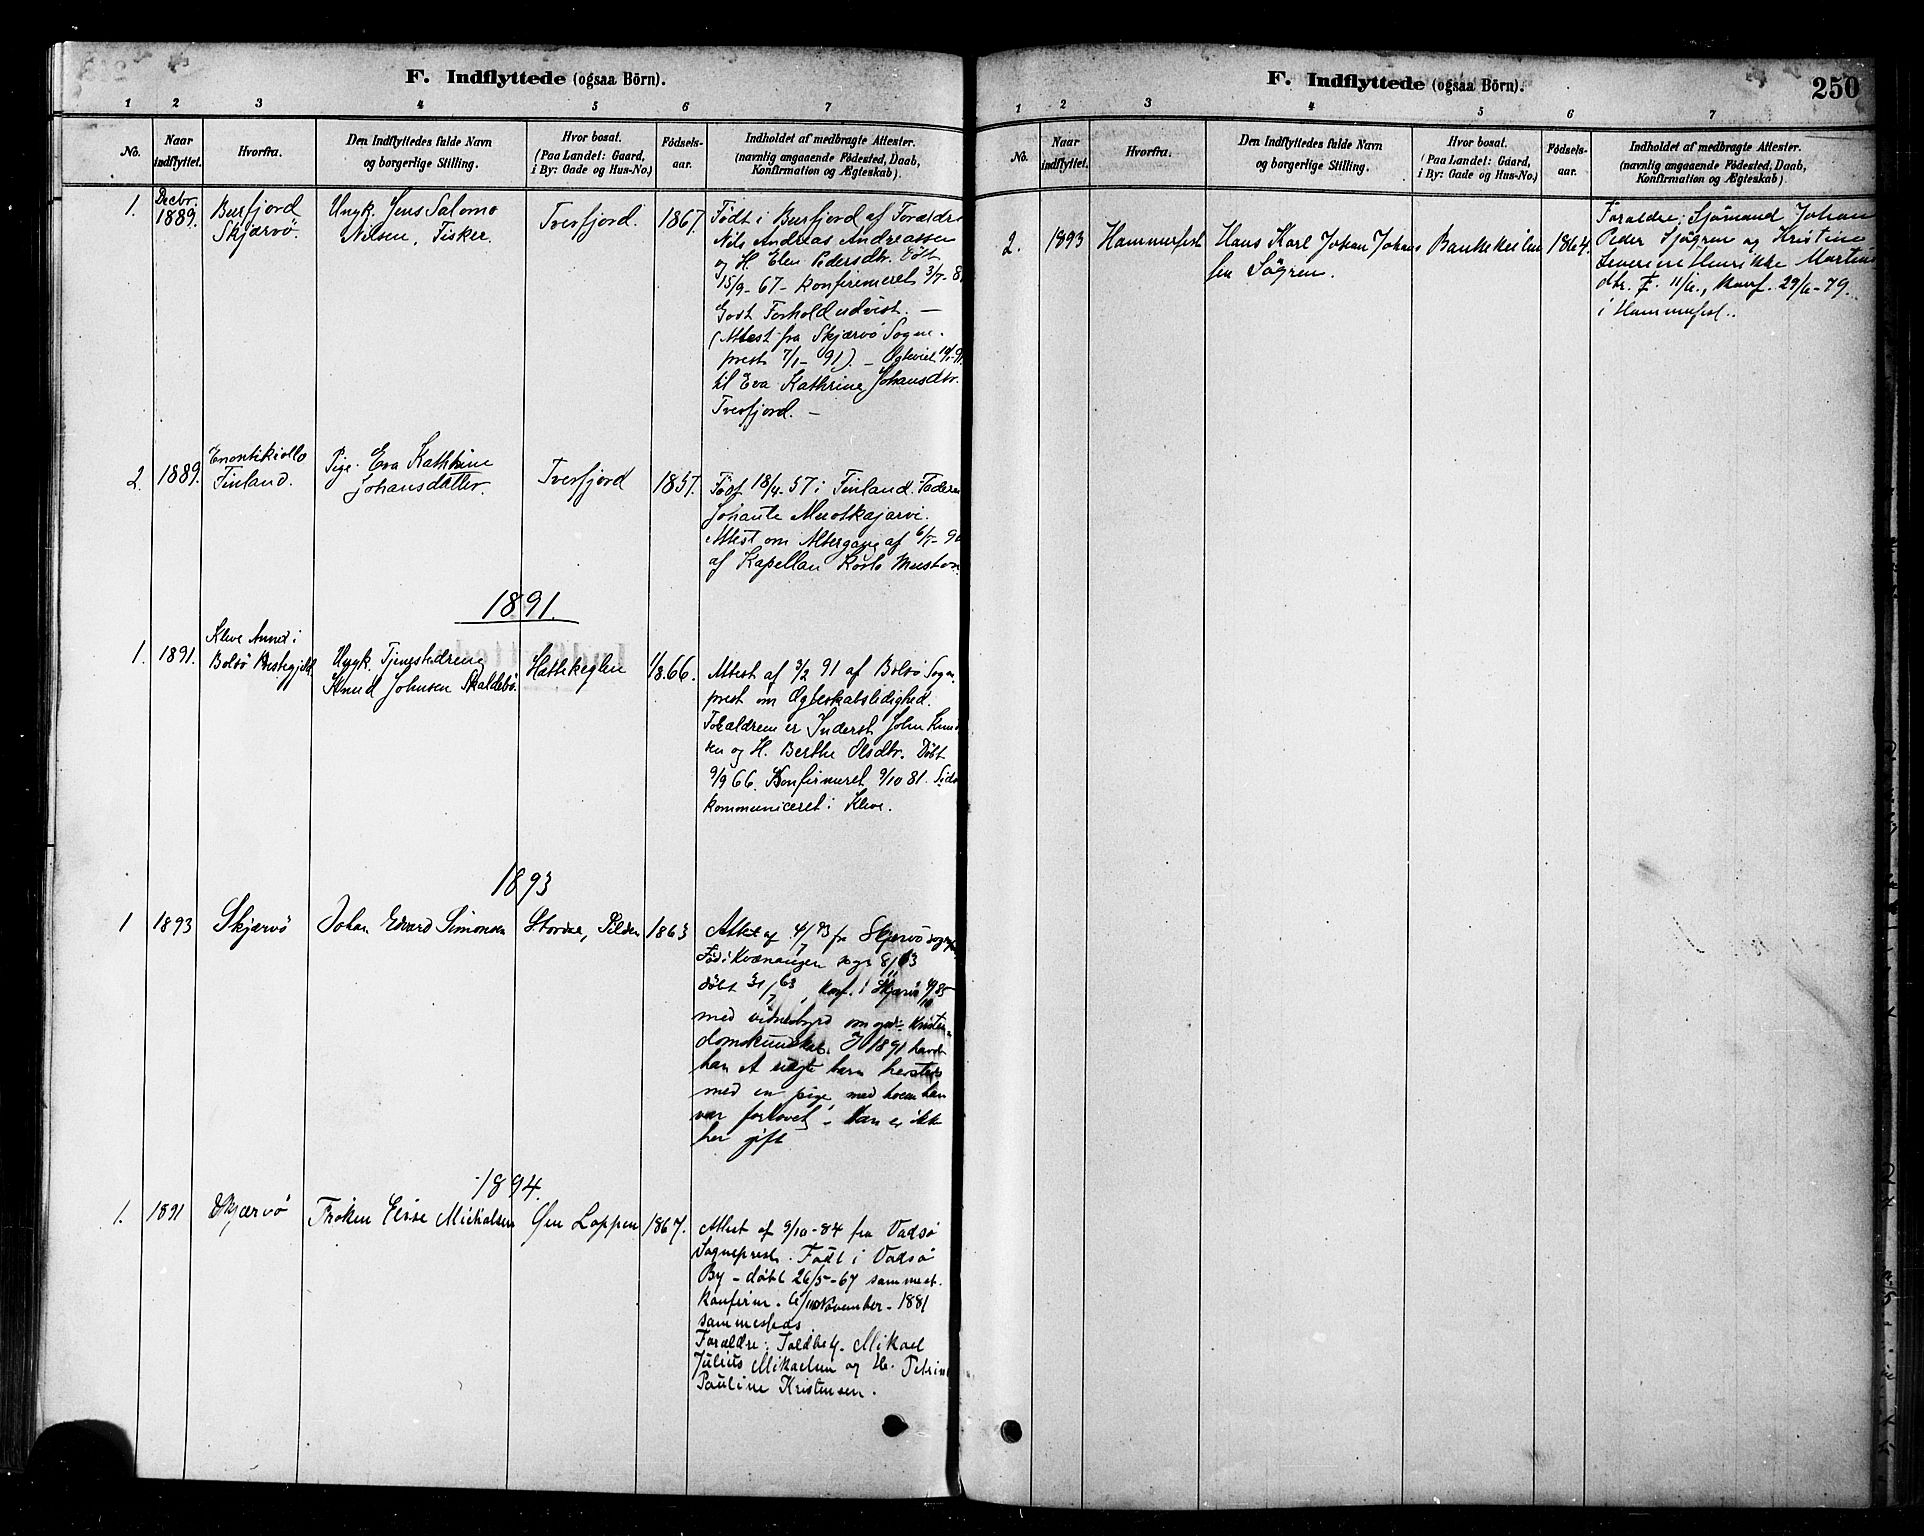 F. Indflyttede (ogsaa Börn).
1 2 3 4 5 6 7
No. Naar indflyttet. Hvorfra. Den Indflyttedes fulde Navn og borgerlige Stilling. Hvor bosat. (Paa Landet: Gaard, i By: Gade og Hus-No.) Födsels-aar. Indholdet af medbragte Attester. (navnlig angaaende Födested, Daab, Konfirmation og Ægteskab).
1. Decbr. 1889. Burfjord Skjærvö. Ungk. Jens Salomo Nilsen, Fisker. Tverfjord. 1867.
Födt i Burfjord af Forældre
Nils Andreas Andreassen
og H. Elen Pedersdtr. Döbt
15/9-67 - Konfirmeret 3/7-8
Godt Forhold udvist. —
(Attest fra Skjærvö Sogne-
prest 7/1-91). —
til Eva Kathrine Johansdtr.
Tverfjord. —
2. 1889. Enontikiollo Finland. Pige Eva Kathrine Johansdatter. Tverfjord 1857.
Födt 18/4-57 i Finland. Faderen
Johante
Attest om Altergang af 6/7-90
af Kapellan Karlo
1891.
1. 1891. Kleve Annex i Bolsö Prestegjeld. Ungk. Tjenestedreng Knud Johnsen Skaldebö. Hattekeglen 1866.
Attest af 3/2 91 af Bolsö Sogne-
prest om Ægteskabsledighed.
Forældrene er Inderst John Knud
sen og H. Berthe Olsdtr. Döbt
9/9 66. Konfirmeret 9/10 81. Sidst
kommuniceret i Kleve.
1893
1 1893 Skjærvö Johan Edvard Simonsen Stordal, Silden 1863
Attest af 4/7 93 fra Skjervö sognepr
Föd i Kvænangen sogn 8/ 63
döbt 31/7 63, konf. i Skjervö 85
med vidnesbyrd om god Kristen-
domskundskab. I 1891 havde
han et uægte barn hersteds
med en pige, med hvem han
var forlovet. Han er ikke
her gift
1894.
1. 1891 Skjærvö Fröken Elise Michalsen Öen Loppen 1867.
Attest af 9/10-84 fra Vadsö
Sogneprest. Födt i Vadsö
By - döbt 26/5-67 sammest.
konfirm. 6/11 November - 1881
sammesteds
Forældre: Toldbetj. Mikael
Julius Mikaelsen og H. Petrine
Pauline Kristensen.
F. Indflyttede (ogsaa Börn).
250
1 2 3 4 5 6 7
No. Naar indflyttet. Hvorfra. Den Indflyttedes fulde Navn og borgerlige Stilling. Hvor bosat. (Paa Landet: Gaard, i By: Gade og Hus-No.) Födsels-aar. Indholdet af medbragte Attester. (navnlig angaaende Födested, Daab, Konfirmation og Ægteskab).
2. 1893 Hammerfest Hans Karl Johan Johan sen Sögren. 1864.
Forældre: Sjömand Johan
Peder Sjögren og Kristine
Severine Henrikke Martins
dtr. F. 11/6, konf. 29/6-79.
i Hammerfest.